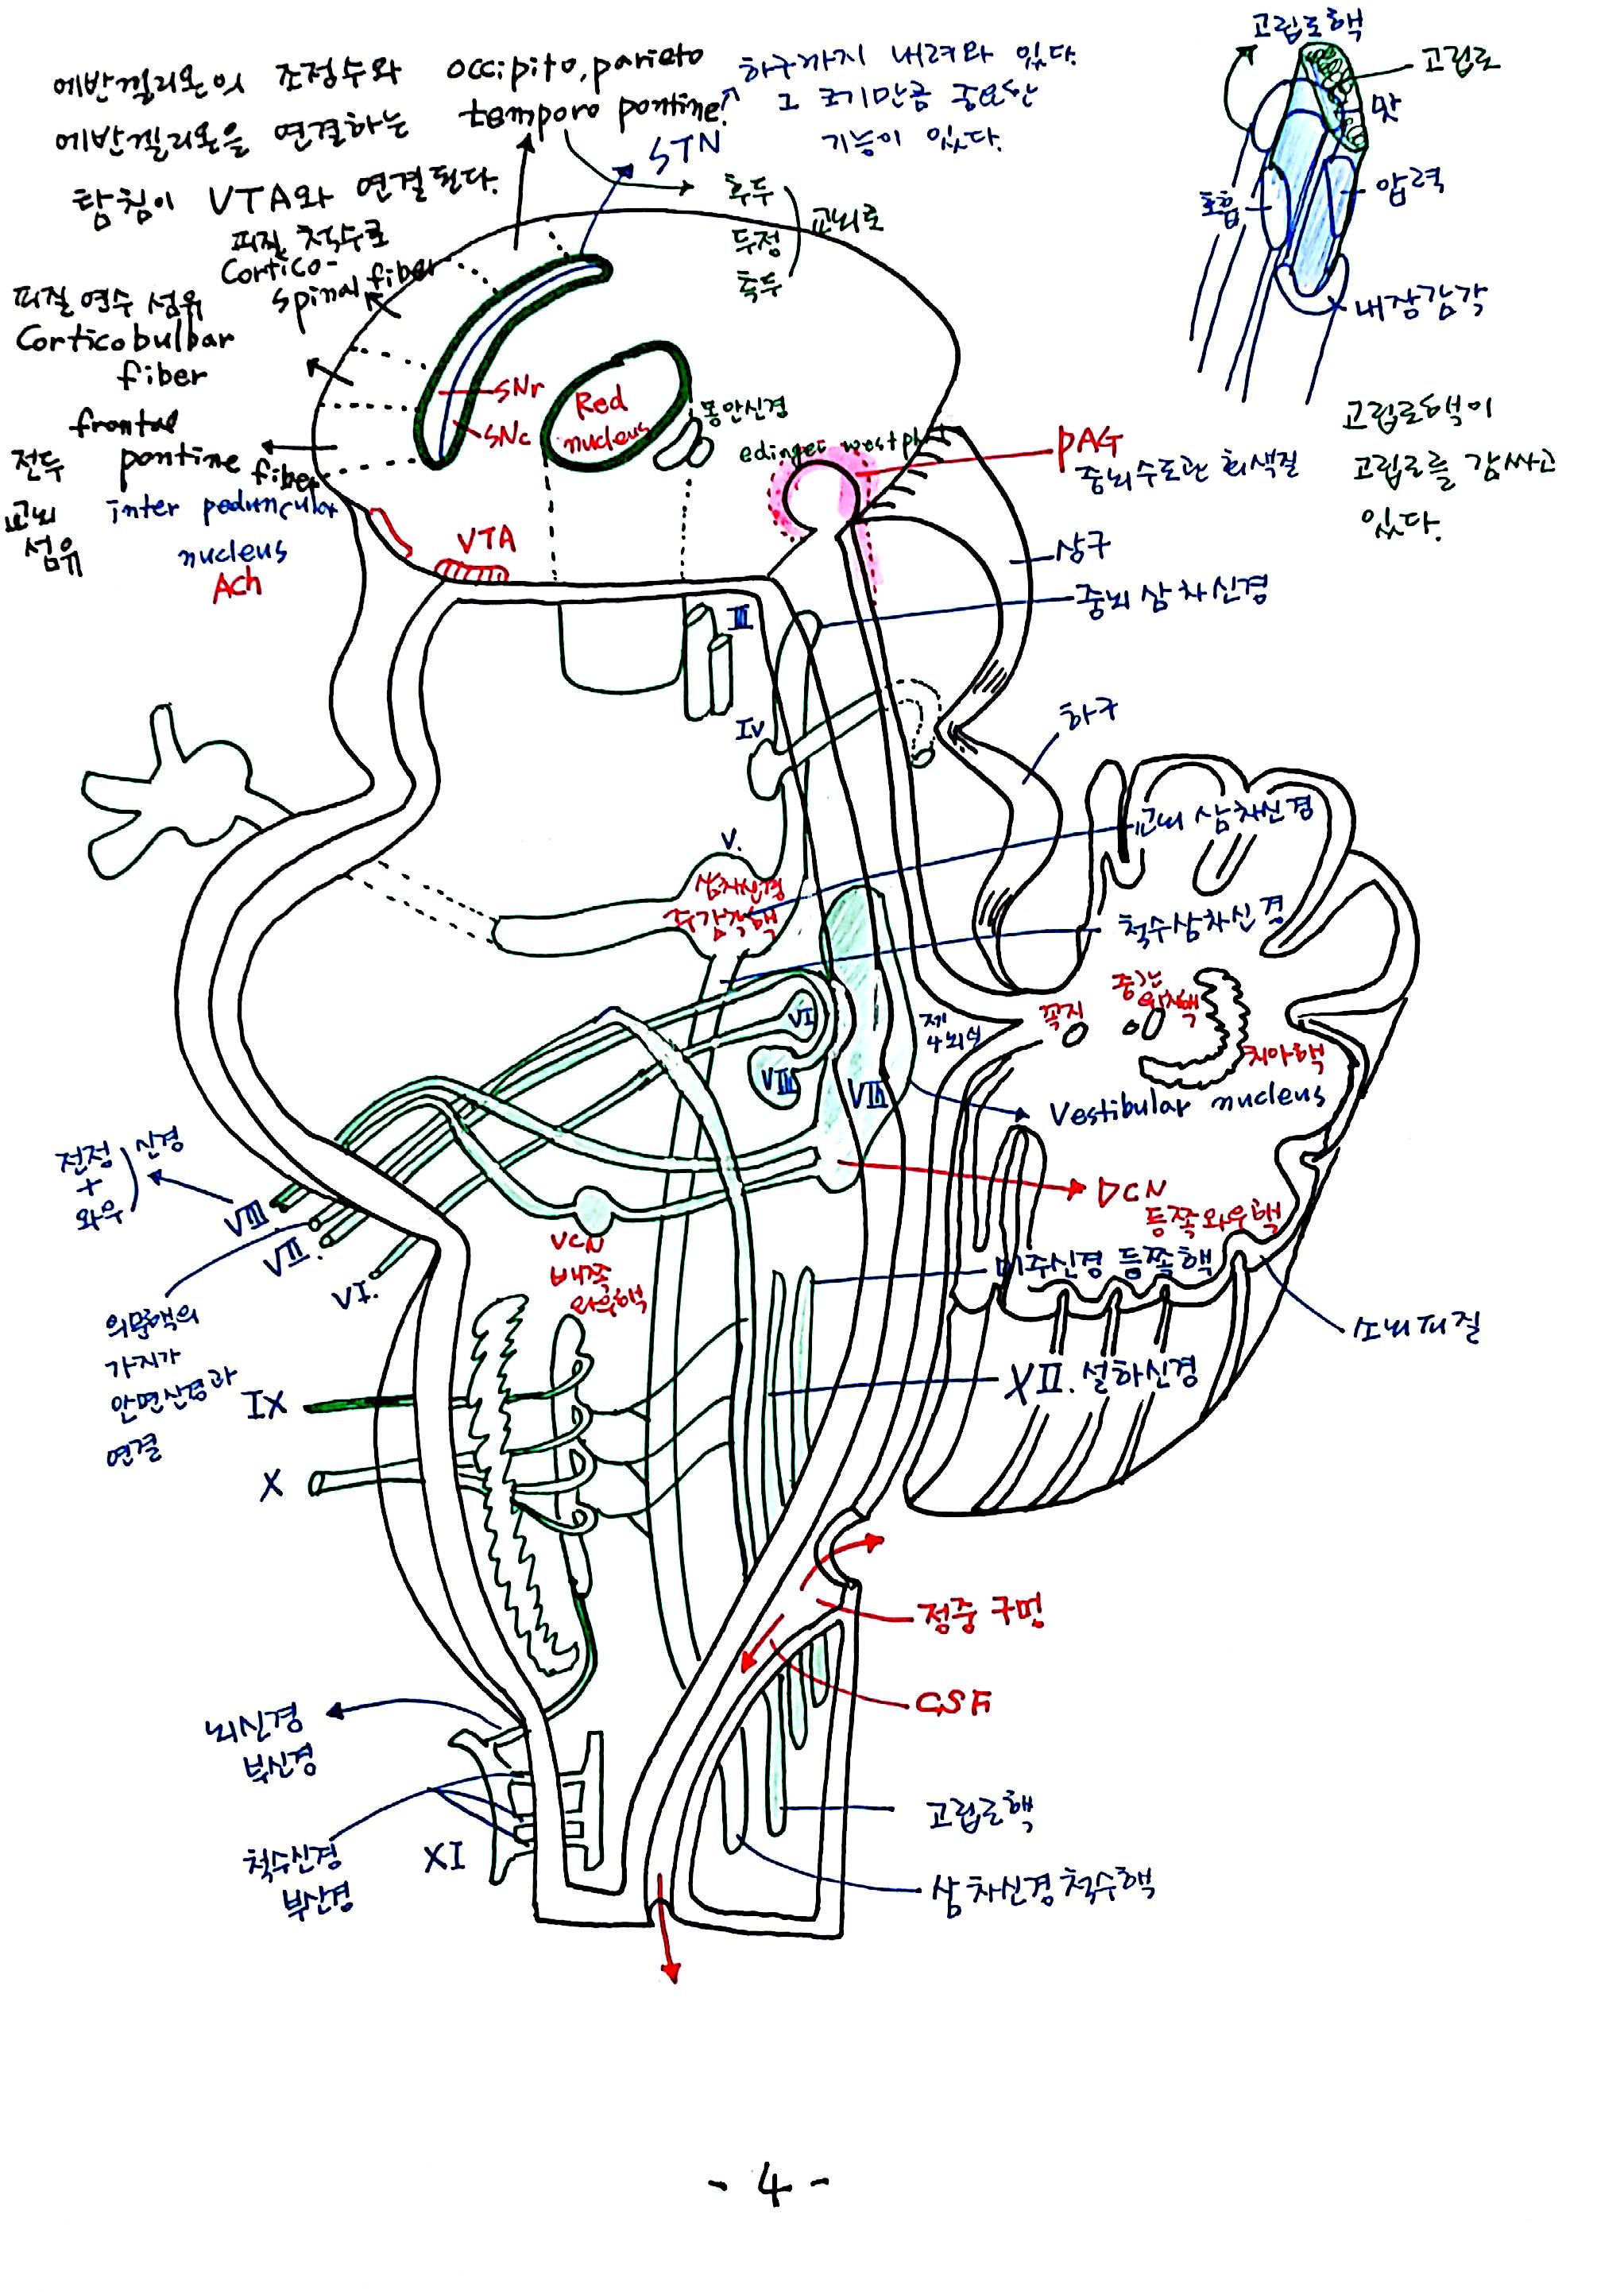 에반껠리온의 조정수와
에반껠리온을 연결하는
탐침이 VTA와 연결된다.
occipito, parieto
temporo pontine.
하구까지 내려와 있다.
그 크기만큼 중요한
기능이 있다.
STN
후두
두정
측두
교뇌로
피질 척수로
Cortico-
spinal fiber
피질 연수 섬유
Corticobulbar
fiber
frontal
pontine fiber
전두
교뇌
섬유
inter peduncular
nucleus
Ach
VTA
SNr
SNc
Red
nucleus
동안신경
edinger westphal
PAG
중뇌수도관 회색질
상구
중뇌 삼차신경
하구
고립로핵
고립로
맛
압력
호흡
내장감각
고립로핵이
고립로를 감싸고
있다.
III
IV
V.
삼차신경
주감각핵
교뇌 삼차신경
척수삼차신경
VI
VII
VIII
제
4뇌실
꼭지
중간
치아핵
Vestibular nucleus
DCN
등쪽와우핵
미주신경 등쪽핵
소뇌피질
XII. 설하신경
전정
+
와우
신경
VIII
VII.
VI.
의문핵의
가지가
안면신경과
연결
VCN
배쪽
와우핵
IX
X
정중 구멍
CSF
뇌신경
부신경
척수신경
부신경
XI
고립로핵
삼차신경척수핵
- 4 -